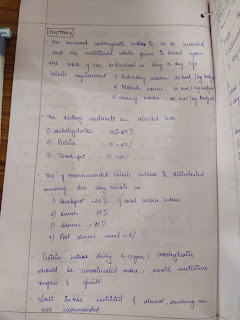 DIETARY
The increased carbohydrate intake is to be avoided
and an nutritional advice given is based upon
the work of the individual in day to day life
Calorie requirement 1) Sedentary worker - 30 kcal /kg bodywt
2) Moderate worker - kcal / kg bodywt
3) Heavy worker - kcal / kg bodywt
The dietary nutrients are divided into
1) carbohydrates -
2) Protein - 15 - 20 %
3) Total fat - 15 - 20 %
of recommended calorie intake is distributed
among the day meals as
1) Breakfast - 25% of total calorie intake
2) Lunch - 35%
3) Dinner -
4) Post dinner meal - 5%
Protein intake daily ; Carbohydrates
should be unrefined more, avoid
sugars &
Salt intake restricted & alcohol smoking are
not recommended